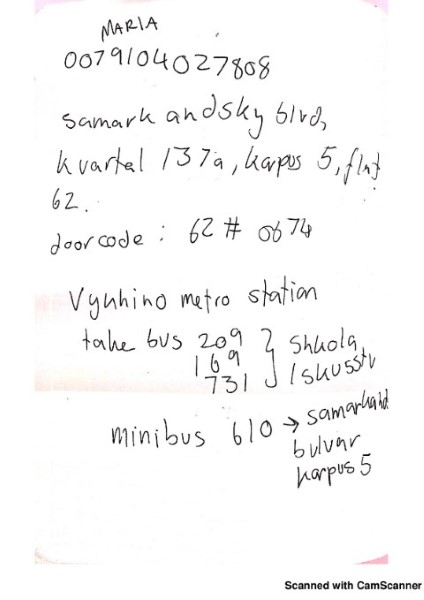 MARIA
0079104027808
samarkandsky blvd,
kvartal 137a, karpus 5, flat
62.
doorcode : 62 # 0674
Vyuhino metro station
take bus 209 } Shkola
169
731 Iskusstv
minibus 610 → samarkand
bulvar
karpus 5
Scanned with CamScanner